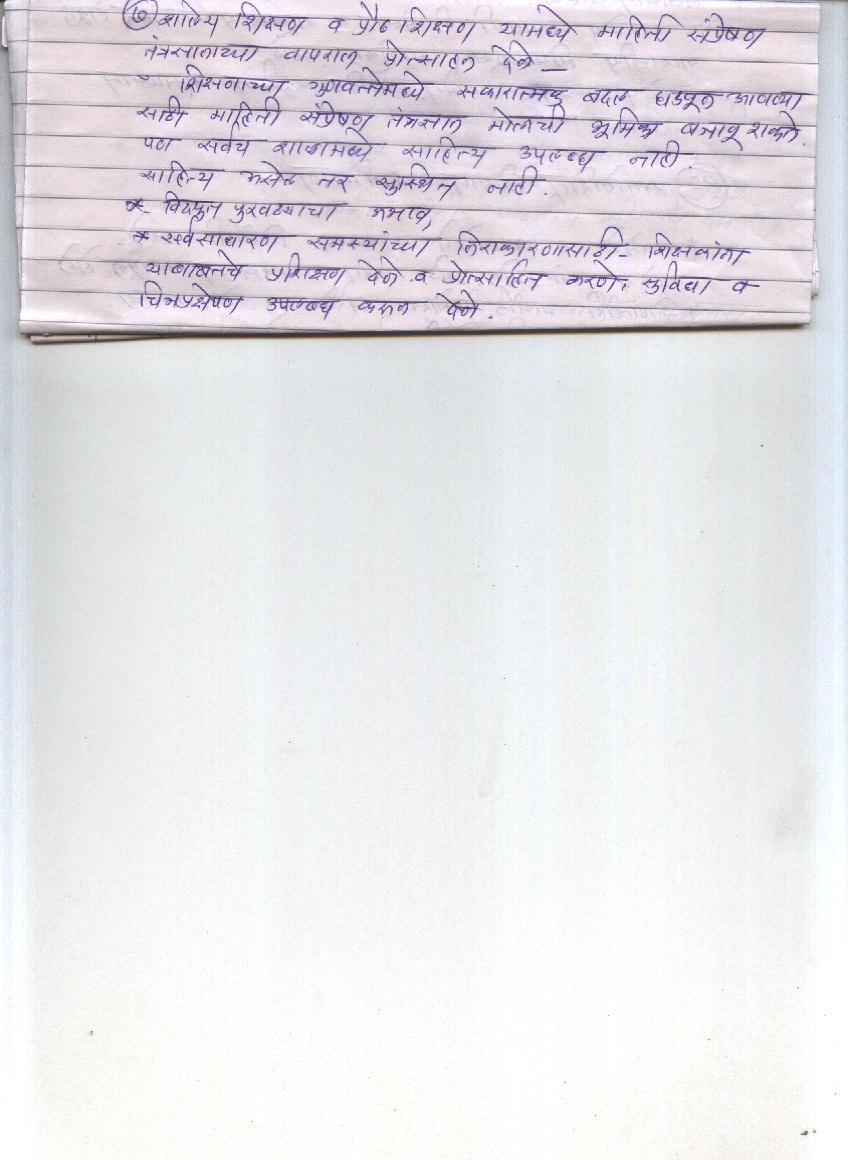 ७ शालेय शिक्षण व प्रौढ शिक्षण यामध्ये माहिती संप्रेषण
तंत्रज्ञानाच्या वापरास प्रोत्साहन देणे –
शिक्षणाच्या गुणवत्तेमध्ये सकारात्मक बदल घडवून आणण्या
साठी माहिती संप्रेषण तंत्रज्ञान मोलाची भूमिका बजावू शकते.
पण सर्वच शाळामध्ये साहित्य उपलब्ध नाही.
साहित्य असेल तर सुस्थित नाही.
* विद्युत पुरवठ्याचा अभाव,
* सर्वसाधारण समस्यांच्या निराकरणासाठी - शिक्षकांना
याबाबतचे प्रशिक्षण देणे व प्रोत्साहित करणे, सुविधा व
चित्रप्रक्षेपण उपलब्ध करून देणे.